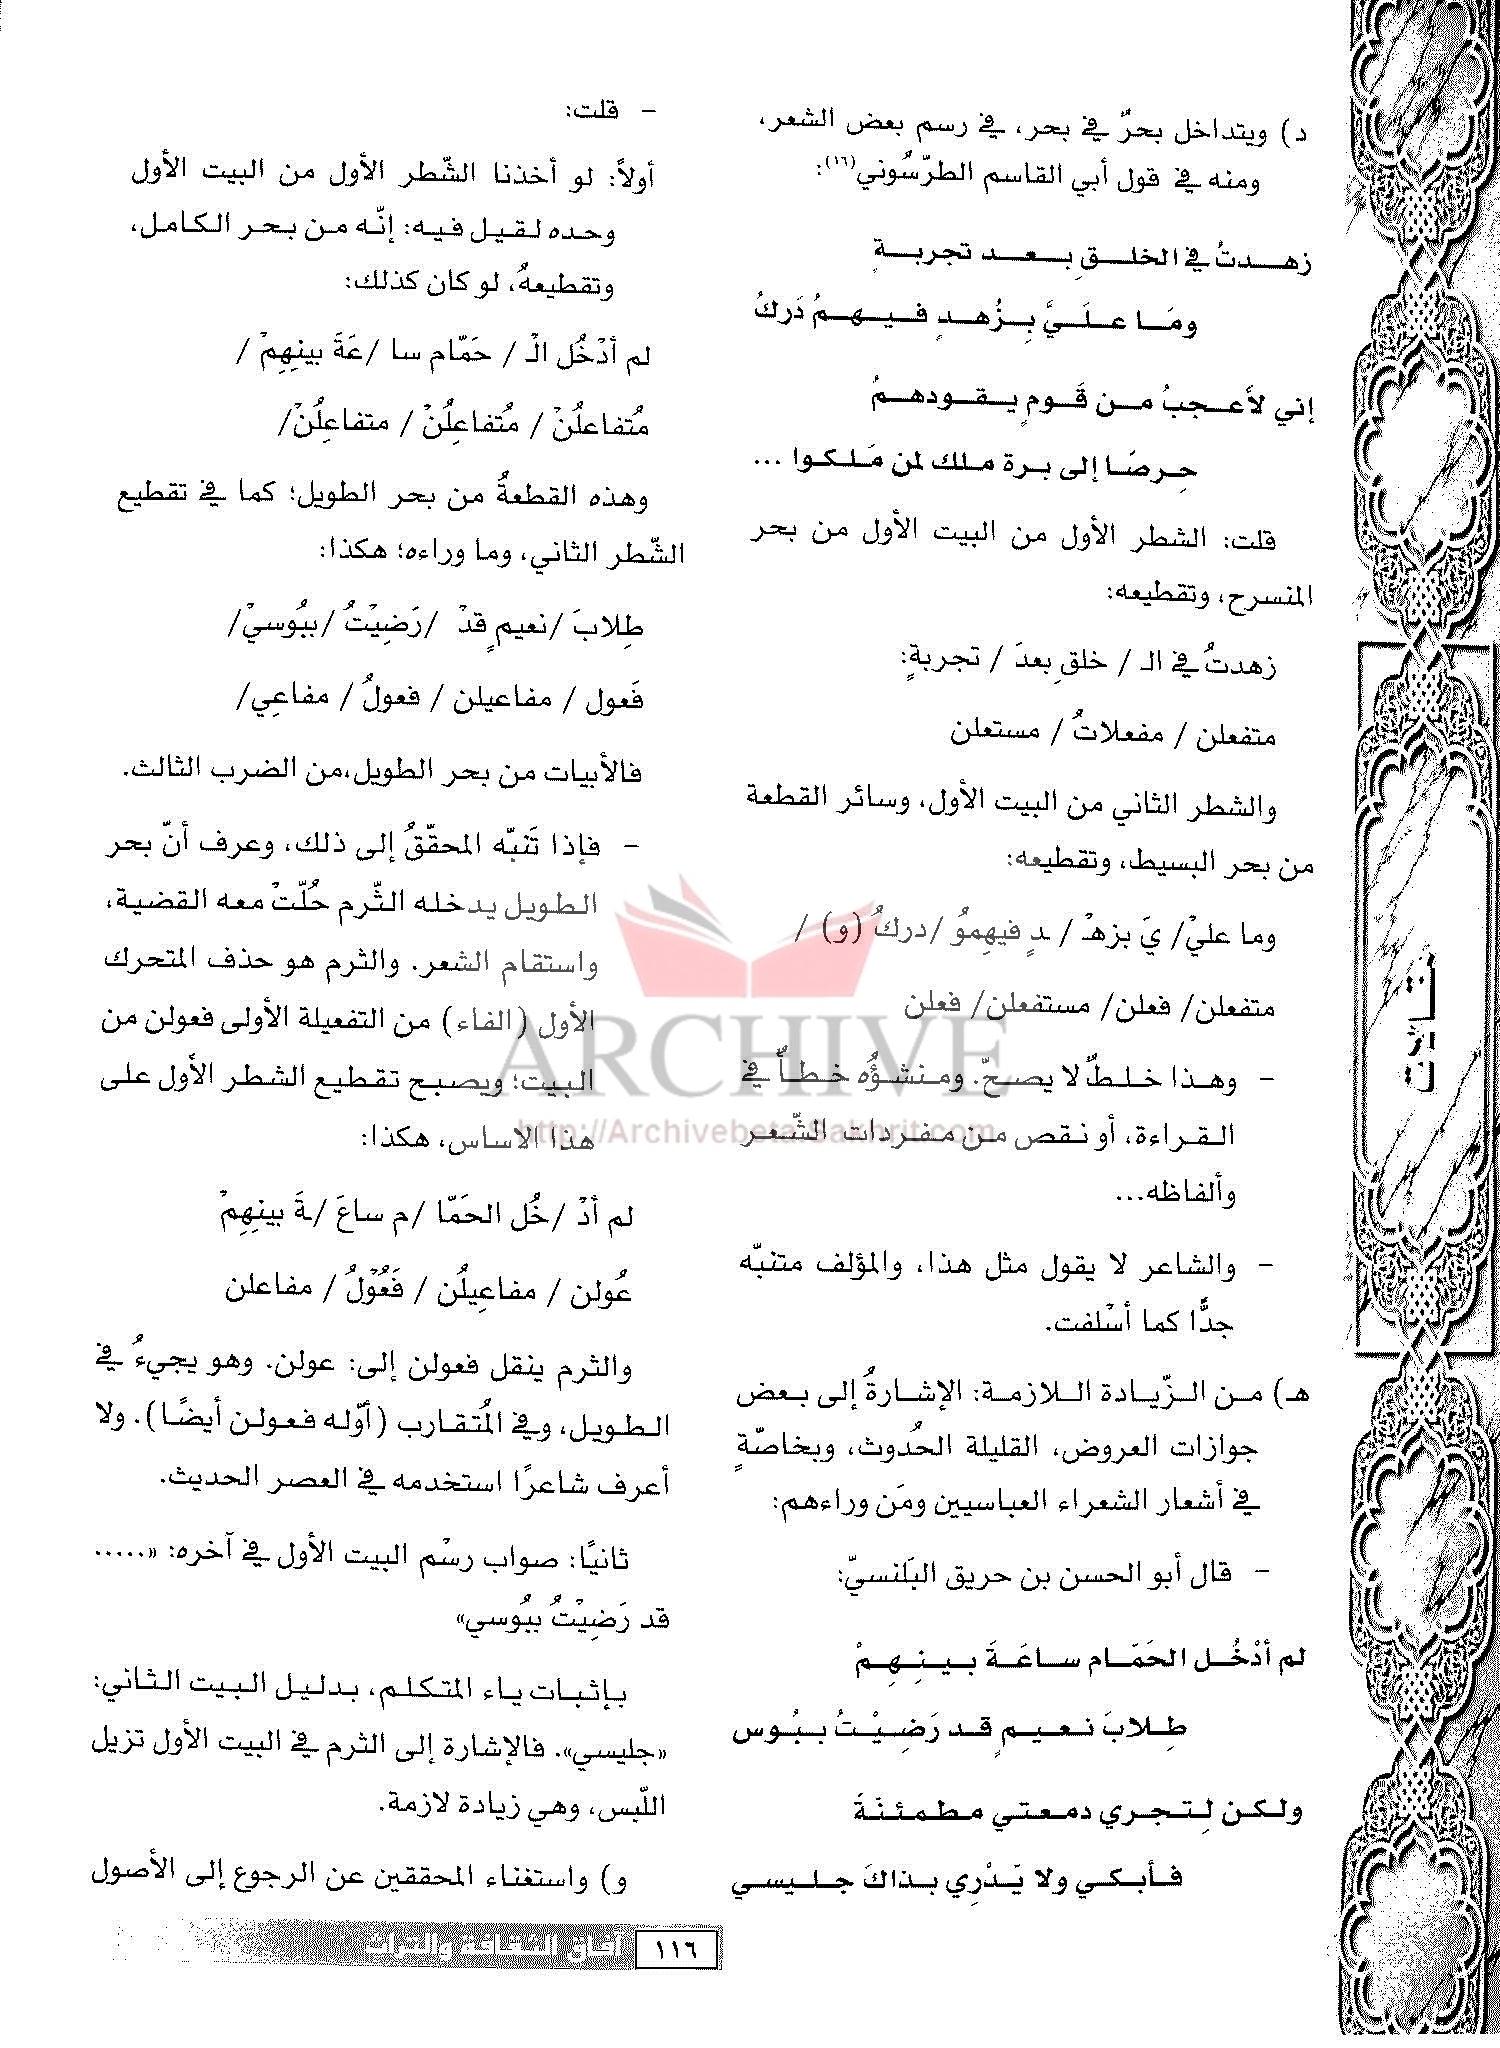 د) ويتداخل بحرٌ في بحر، في رسم بعض الشعر،
ومنه في قول أبي القاسم الطرّسُوني(١٦):
زهدتُ في الخلقِ بعد تجربةٍ
ومَا علَيَّ بِزُهدٍ فيهمُ دَركُ
إني لأعجبُ من قَومٍ يقودهمُ
حِرصًا إلى برة ملك لمن مَلكوا ...
قلت: الشطر الأول من البيت الأول من بحر
المنسرح، وتقطيعه:
زهدتُ في الـ / خلقِ بعدَ / تجربةٍ:
متفعلن / مفعلاتُ / مستعلن
والشطر الثاني من البيت الأول، وسائر القطعة
من بحر البسيط، وتقطيعه:
وما عليْ/ يَ بزهْ / دٍ فيهِموُ /دركُ (و) /
متفعلن/ فعلن/ مستفعلن/ فعلن
- وهذا خلطٌ لا يصحّ. ومنشؤُه خطأٌ في
القراءة، أو نقص من مفردات الشّعر
وألفاظه...
- والشاعر لا يقول مثل هذا، والمؤلف متنبّه
جدًّا كما أسْلفت.
هـ) من الزّيادة اللازمة: الإشارةُ إلى بعض
جوازات العروض، القليلة الحُدوث، وبخاصّةٍ
في أشعار الشعراء العباسيين ومَن وراءهم:
- قال أبو الحسن بن حريق البَلنسيّ:
لم أدْخُل الحَمّام ساعَةَ بينِهِمْ
طِلابَ نعيمٍ قد رَضِيْتُ ببُوس
ولكن لِتجري دمعتي مطمئنّةً
فأبكي ولا يَدْرِي بذاكَ جليسي
- قلت:
أولاً: لو أخذنا الشّطر الأول من البيت الأول
وحده لقيل فيه: إنّه من بحر الكامل،
وتقطيعهُ، لو كان كذلك:
لم أدْخُل الْـ / حَمّام سا /عَةَ بينِهِمْ /
مُتفاعلُنْ / مُتفاعِلُنْ / متفاعِلُنْ/
وهذه القطعةُ من بحر الطويل؛ كما في تقطيع
الشّطر الثاني، وما وراءه؛ هكذا:
طِلابَ /نعيمٍ قدْ /رَضِيْتُ /ببُوسيْ/
فَعول / مفاعيلن / فعولُ / مفاعِي/
فالأبيات من بحر الطويل،من الضرب الثالث.
- فإذا تَنبّه المحقّقُ إلى ذلك، وعرف أنّ بحر
الطويل يدخله الثّرم حُلّتْ معه القضية،
واستقام الشعر. والثرم هو حذف المتحرك
الأول (الفاء) من التفعيلة الأولى فعولن من
البيت؛ ويصبح تقطيع الشطر الأول على
هذا الاساس، هكذا:
لم أدْ /خُل الحَمّا /م ساعَ /ةَ بينِهِمْ
عُولن / مفاعِيلُن / فَعُوْلُ / مفاعلن
والثرم ينقل فعولن إلى: عولن. وهو يجيءُ في
الطويل، وفي المُتقارب (أوّله فعولن أيضًا). ولا
أعرف شاعرًا استخدمه في العصر الحديث.
ثانيًا: صواب رسْم البيت الأول في آخره: «.....
قد رَضِيْتُ ببُوسي»
بإثبات ياء المتكلم، بدليل البيت الثاني:
«جليسي». فالإشارة إلى الثرم في البيت الأول تزيل
اللّبس، وهي زيادة لازمة.
و) واستغناء المحققين عن الرجوع إلى الأصول
مقالات
ARCHIVE
١١٦ آفاق الثقافة والتراث